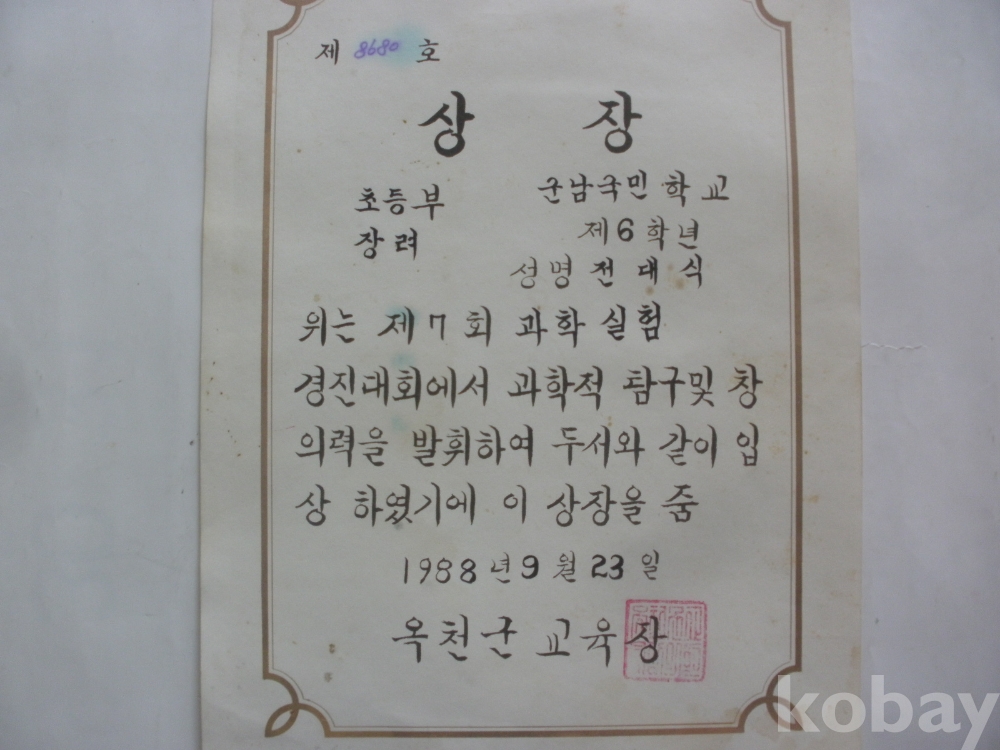 제 8680 호
상 장
초등부 군남국민학교
장려 제6학년
성명 전대식
위는 제7회 과학 실험
경진대회에서 과학적 탐구및 창
의력을 발휘하여 두서와 같이 입
상 하였기에 이 상장을 줌
1988년 9월 23일
옥천군 교육장
kobay